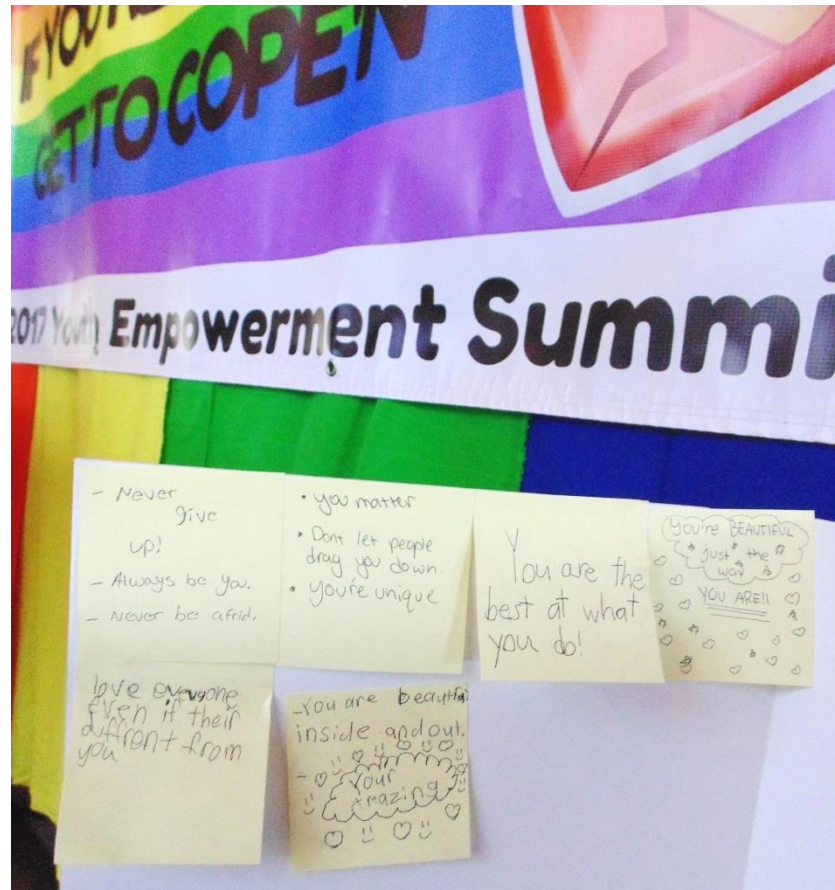 IF YOU'RE
GET TO COPEN
2017 Youth Empowerment Summi
- Never
give
up!
- Always be you.
- Never be afrid.
• you matter
• Dont let people
drag you down.
• you're unique
You are the
best at what
you do!
You're BEAUTIFUL
Just the
way
YOU ARE!!
love everyone
even if their
diffront from
you
-You are beautiful
inside and out.
- Your
Amazing